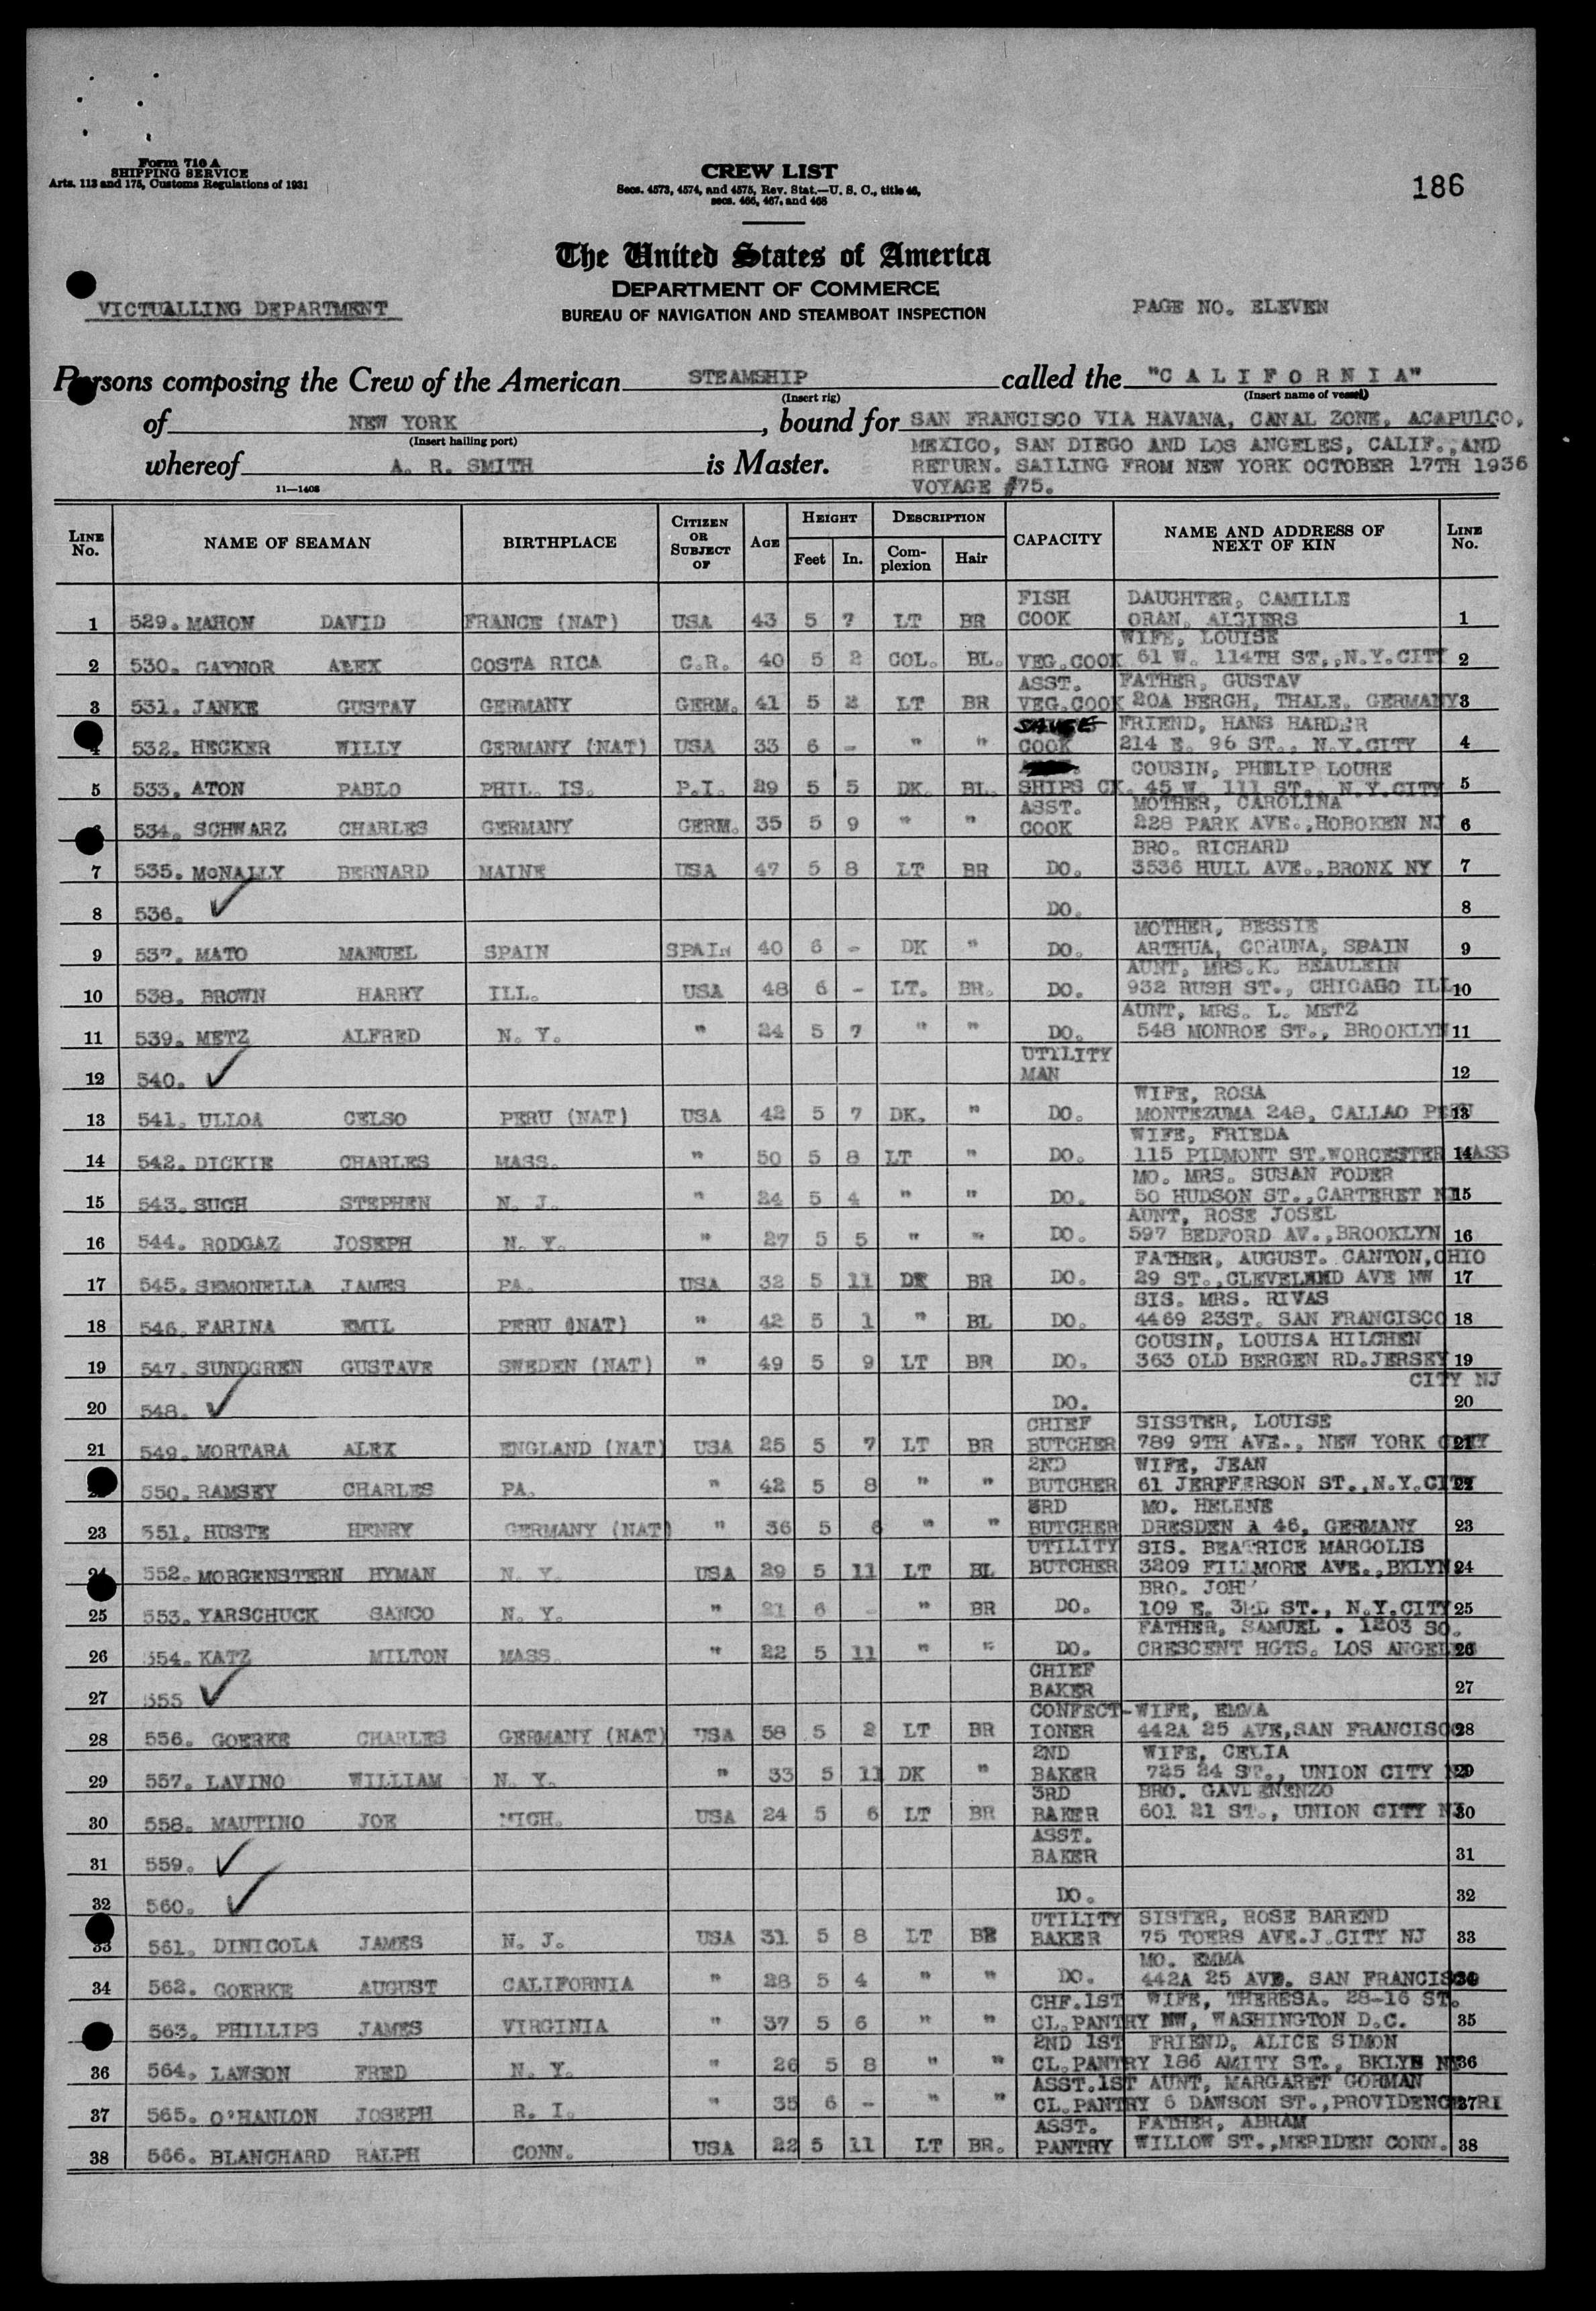 Form 710 A
SHIPPING SERVICE
Arts. 113 and 175, Customs Regulations of 1931
CREW LIST
Secs. 4573, 4574, and 4575, Rev. Stat.—U. S. C., title 46,
secs. 466, 467, and 468
186
The United States of America
DEPARTMENT OF COMMERCE
BUREAU OF NAVIGATION AND STEAMBOAT INSPECTION
VICTUALLING DEPARTMENT
PAGE NO. ELEVEN
Persons composing the Crew of the American STEAMSHIP called the "C A L I F O R N I A"
(Insert rig) (Insert name of vessel)
of NEW YORK, bound for SAN FRANCISCO VIA HAVANA, CANAL ZONE, ACAPULCO,
(Insert hailing port) MEXICO, SAN DIEGO AND LOS ANGELES, CALIF., AND
whereof A. R. SMITH is Master. RETURN. SAILING FROM NEW YORK OCTOBER 17TH 1936
11—1408 VOYAGE #75.
LINE No. NAME OF SEAMAN BIRTHPLACE CITIZEN OR SUBJECT OF AGE HEIGHT Feet In. DESCRIPTION Complexion Hair CAPACITY NAME AND ADDRESS OF NEXT OF KIN LINE No.
FISH DAUGHTER, CAMILLE
1 529. MAHON DAVID FRANCE (NAT) USA 43 5 7 LT BR COOK ORAN, ALGIERS 1
WIFE, LOUISE
2 530. GAYNOR ALEX COSTA RICA C.R. 40 5 2 COL. BL. VEG.COOK 61 W. 114TH ST.,N.Y.CITY 2
ASST. FATHER, GUSTAV
3 531. JANKE GUSTAV GERMANY GERM. 41 5 2 LT BR VEG.COOK 20A BERGH, THALE, GERMANY 3
FRIEND, HANS HARDER
4 532. HECKER WILLY GERMANY (NAT) USA 33 6 - " " COOK 214 E. 96 ST., N.Y.CITY 4
COUSIN, PHILIP LOURE
5 533. ATON PABLO PHIL. IS. P.I. 29 5 5 DK. BL. SHIPS CK. 45 W. 111 ST., N.Y.CITY 5
ASST. MOTHER, CAROLINA
534. SCHWARZ CHARLES GERMANY GERM. 35 5 9 " " COOK 228 PARK AVE.,HOBOKEN NJ 6
BRO. RICHARD
7 535. McNALLY BERNARD MAINE USA 47 5 8 LT BR DO. 3536 HULL AVE.,BRONX NY 7
8 536. ✓ DO. 8
MOTHER, BESSIE
9 537. MATO MANUEL SPAIN SPAIN 40 6 - DK " DO. ARTHUA, CORUNA, SPAIN 9
AUNT, MRS.K. BEAULEIN
10 538. BROWN HARRY ILL. USA 48 6 - LT. BR. DO. 932 RUSH ST., CHICAGO ILL 10
AUNT, MRS. L. METZ
11 539. METZ ALFRED N. Y. " 24 5 7 " " DO. 548 MONROE ST., BROOKLYN 11
UTILITY
12 540. ✓ MAN 12
WIFE, ROSA
13 541. ULLOA CELSO PERU (NAT) USA 42 5 7 DK. " DO. MONTEZUMA 248, CALLAO PERU 13
WIFE, FRIEDA
14 542. DICKIE CHARLES MASS. " 50 5 8 LT " DO. 115 PIDMONT ST.WORCESTER MASS 14
MO. MRS. SUSAN FODER
15 543. SUCH STEPHEN N. J. " 24 5 4 " " DO. 50 HUDSON ST.,CARTERET NJ 15
AUNT, ROSE JOSEL
16 544. RODGAZ JOSEPH N. Y. " 27 5 5 " " DO. 597 BEDFORD AV.,BROOKLYN 16
FATHER, AUGUST. CANTON,OHIO
17 545. SEMONELLA JAMES PA. USA 32 5 11 DK BR DO. 29 ST.,CLEVELAND AVE NW 17
SIS. MRS. RIVAS
18 546. FARINA EMIL PERU (NAT) " 42 5 1 " BL DO. 4469 23ST. SAN FRANCISCO 18
COUSIN, LOUISA HILCHEN
19 547. SUNDGREN GUSTAVE SWEDEN (NAT) " 49 5 9 LT BR DO. 363 OLD BERGEN RD.JERSEY 19
CITY NJ
20 548. ✓ DO. 20
CHIEF SISSTER, LOUISE
21 549. MORTARA ALEX ENGLAND (NAT) USA 25 5 7 LT BR BUTCHER 789 9TH AVE., NEW YORK CITY 21
2ND WIFE, JEAN
550. RAMSEY CHARLES PA. " 42 5 8 " " BUTCHER 61 JERFFERSON ST.,N.Y.CITY 22
3RD MO. HELENE
23 551. HUSTE HENRY GERMANY (NAT) " 36 5 6 " " BUTCHER DRESDEN A 46, GERMANY 23
UTILITY SIS. BEATRICE MARGOLIS
24 552. MORGENSTERN HYMAN N. Y. USA 29 5 11 LT BL BUTCHER 3209 FILLMORE AVE.,BKLYN 24
BRO. JOHN
25 553. YARSCHUCK SANCO N. Y. " 21 6 - " BR DO. 109 E. 3RD ST., N.Y.CITY 25
FATHER, SAMUEL . 1203 SO.
26 554. KATZ MILTON MASS. " 22 5 11 " " DO. CRESCENT HGTS. LOS ANGELES 26
CHIEF
27 555 ✓ BAKER 27
CONFECT- WIFE, EMMA
28 556. GOERKE CHARLES GERMANY (NAT) USA 58 5 2 LT BR IONER 442A 25 AVE,SAN FRANCISCO 28
2ND WIFE, CELIA
29 557. LAVINO WILLIAM N. Y. " 33 5 11 DK " BAKER 725 24 ST., UNION CITY NJ 29
3RD BRO.
30 558. MAUTINO JOE MICH. USA 24 5 6 LT BR BAKER 601 21 ST., UNION CITY NJ 30
ASST.
31 559. ✓ BAKER 31
32 560. ✓ DO. 32
UTILITY SISTER, ROSE BAREND
33 561. DINICOLA JAMES N. J. USA 31 5 8 LT BR BAKER 75 TOERS AVE.J.CITY NJ 33
MO. EMMA
34 562. GOERKE AUGUST CALIFORNIA " 28 5 4 " " DO. 442A 25 AVE. SAN FRANCISCO 34
CHF.1ST WIFE, THERESA. 28-16 ST.
563. PHILLIPS JAMES VIRGINIA " 37 5 6 " " CL.PANTRY NW, WASHINGTON D.C. 35
2ND 1ST FRIEND, ALICE SIMON
36 564. LAWSON FRED N. Y. " 26 5 8 " " CL.PANTRY 186 AMITY ST., BKLYN NY 36
ASST.1ST AUNT, MARGARET GORMAN
37 565. O'HANLON JOSEPH R. I. " 35 6 - " " CL.PANTRY 6 DAWSON ST.,PROVIDENCE RI 37
ASST. FATHER, ABRAM
38 566. BLANCHARD RALPH CONN. USA 22 5 11 LT BR. PANTRY WILLOW ST.,MERIDEN CONN. 38